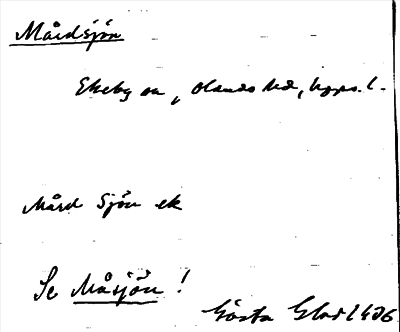 Mårdsjön
Ekeby sn, Olands hd, Upps. l.
Mård Sjön ek
Se Måsjön!
Gösta